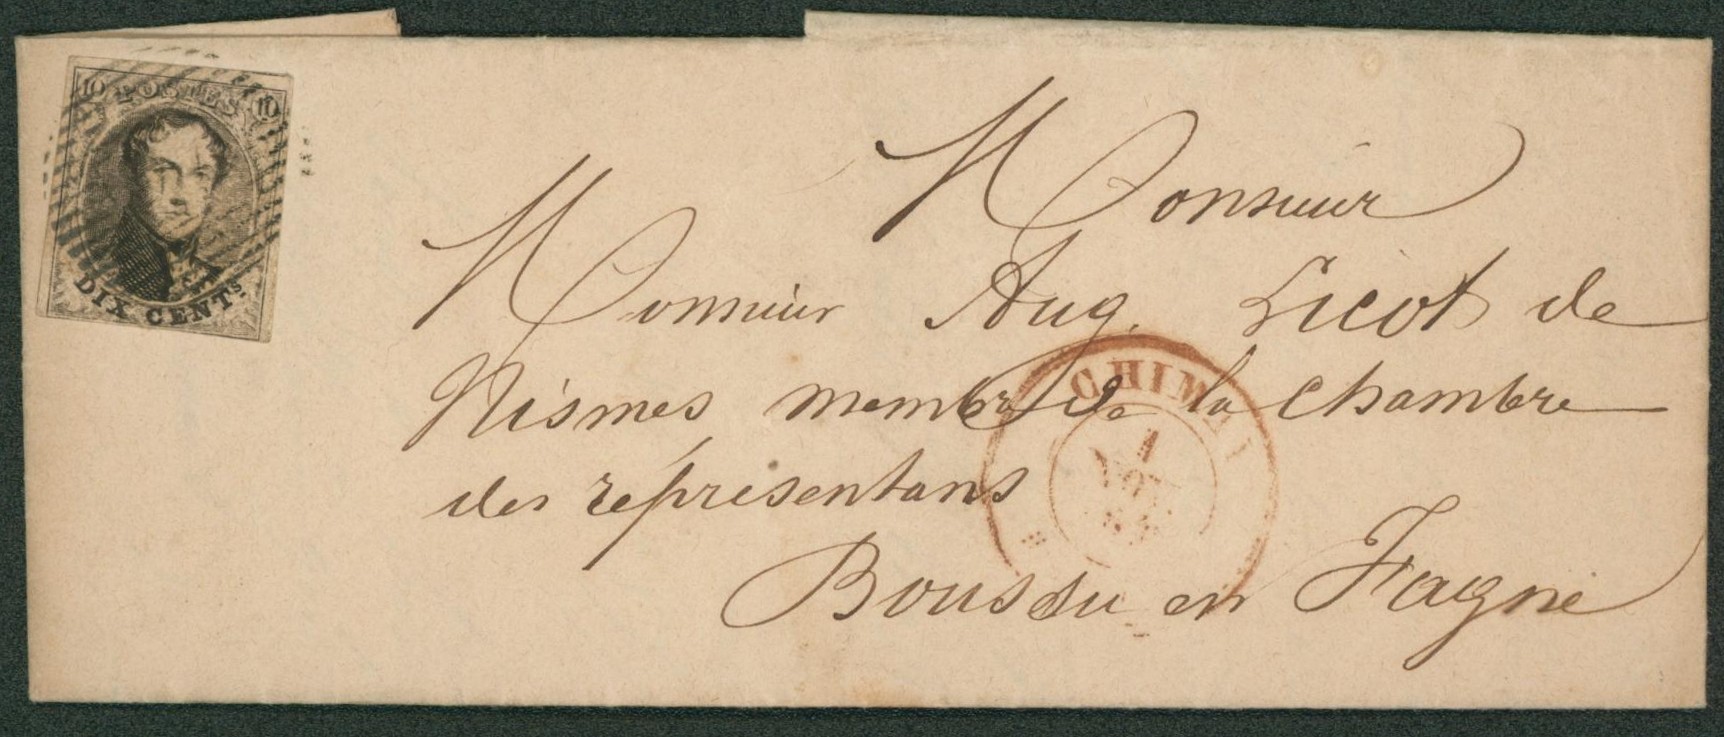 10 POSTES 10
DIX CENTS.
Monsieur
Monsieur Aug. Licot de
Nismes membre de la chambre
des représentans
Boussu en Fagne
CHIMAY
1